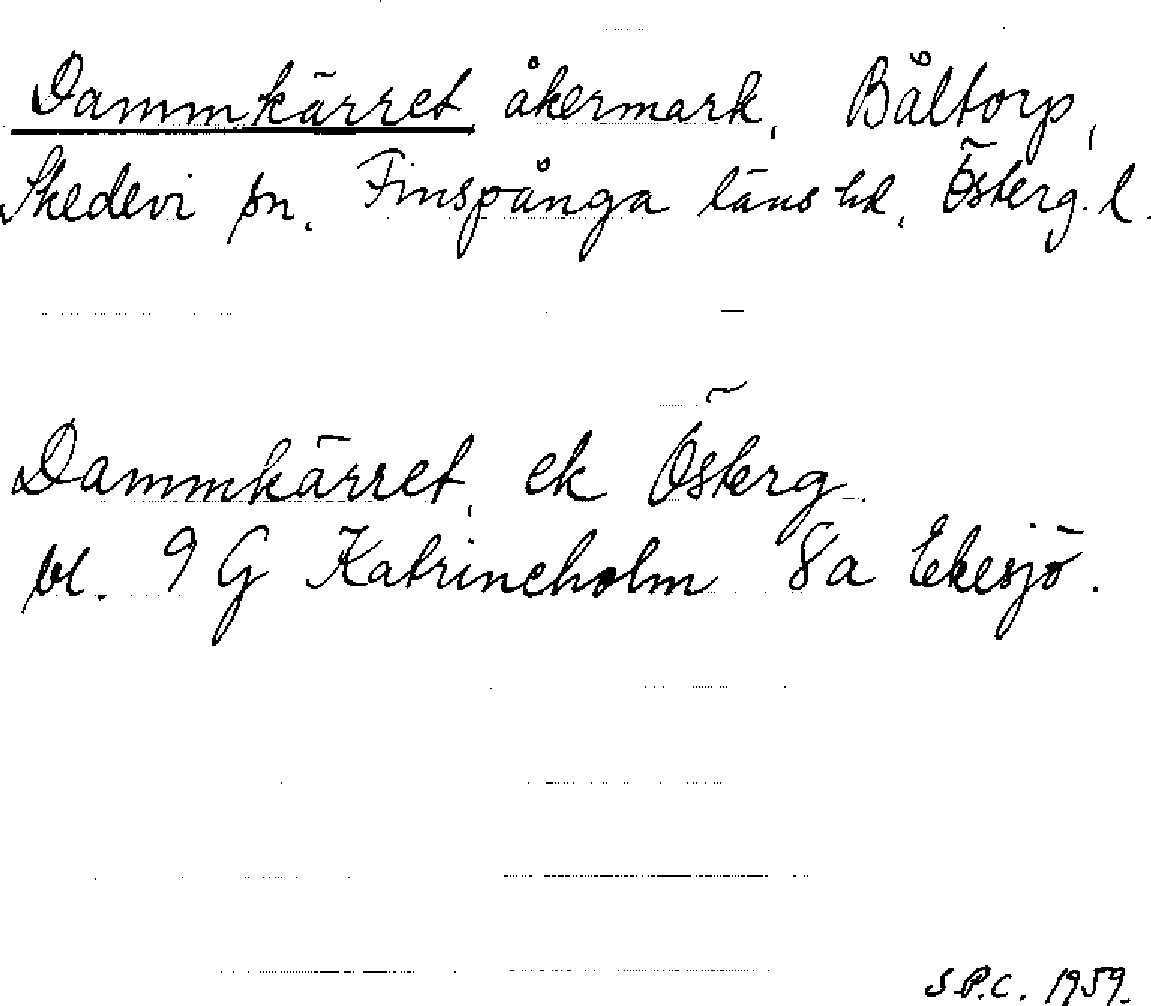 Dammkärret, åkermark, Båltorp,
Skedevi sn, Finspånga läns hd, Österg. l.
Dammkärret, ek Österg.
bl. 9 G Katrineholm 8a Ekesjö.
S.P.C. 1959.